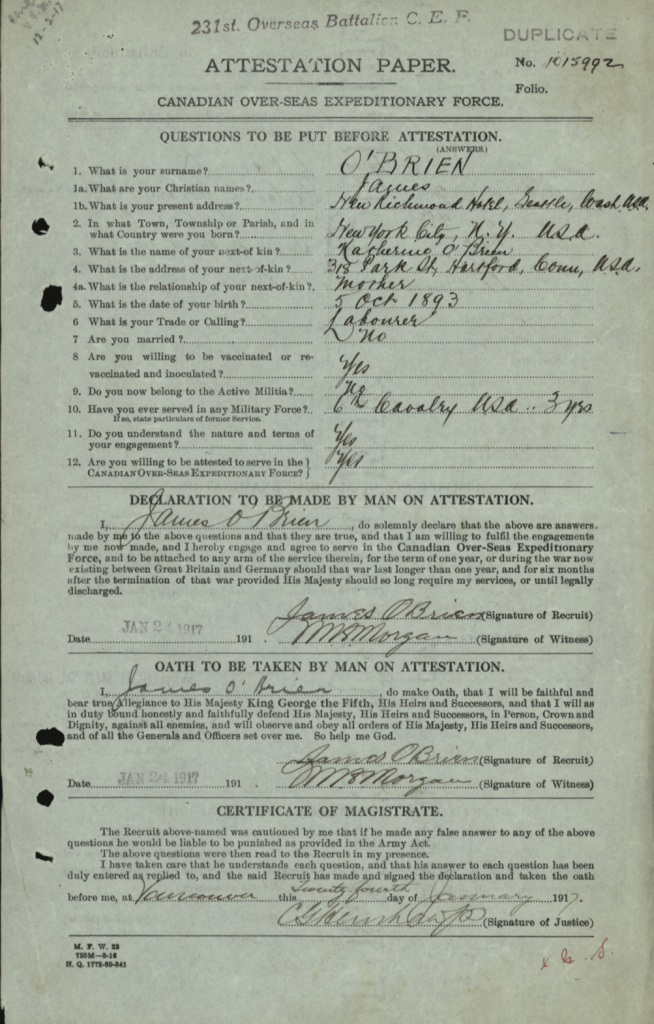 12-2-17
231st. Overseas Battalion C. E. F.
DUPLICATE
ATTESTATION PAPER.
No. 1015992
Folio.
CANADIAN OVER-SEAS EXPEDITIONARY FORCE.
QUESTIONS TO BE PUT BEFORE ATTESTATION.
(ANSWERS.)
1. What is your surname? O'BRIEN
1a. What are your Christian names? James
1b. What is your present address? New Richmond Hotel, Seattle, Wash. USA.
2. In what Town, Township or Parish, and in
what Country were you born? New York City, N.Y. USA.
3. What is the name of your next-of kin? Katherine O'Brien
4. What is the address of your next-of-kin? 318 Park St, Hartford, Conn, USA.
4a. What is the relationship of your next-of-kin? Mother
5. What is the date of your birth? 5 Oct 1893
6 What is your Trade or Calling? Labourer
7 Are you married? No
8 Are you willing to be vaccinated or re-
vaccinated and inoculated? Yes
9. Do you now belong to the Active Militia? No
10. Have you ever served in any Military Force? 6th Cavalry USA.. 3 yrs
If so, state particulars of former Service.
11. Do you understand the nature and terms of
your engagement? Yes
12. Are you willing to be attested to serve in the
CANADIAN OVER-SEAS EXPEDITIONARY FORCE? Yes
DECLARATION TO BE MADE BY MAN ON ATTESTATION.
I, James O'Brien, do solemnly declare that the above are answers
made by me to the above questions and that they are true, and that I am willing to fulfil the engagements
by me now made, and I hereby engage and agree to serve in the Canadian Over-Seas Expeditionary
Force, and to be attached to any arm of the service therein, for the term of one year, or during the war now
existing between Great Britain and Germany should that war last longer than one year, and for six months
after the termination of that war provided His Majesty should so long require my services, or until legally
discharged.
James O'Brien (Signature of Recruit)
Date JAN 24 1917 191 . WB Morgan (Signature of Witness)
OATH TO BE TAKEN BY MAN ON ATTESTATION.
I, James O'Brien, do make Oath, that I will be faithful and
bear true Allegiance to His Majesty King George the Fifth, His Heirs and Successors, and that I will as
in duty bound honestly and faithfully defend His Majesty, His Heirs and Successors, in Person, Crown and
Dignity, against all enemies, and will observe and obey all orders of His Majesty, His Heirs and Successors,
and of all the Generals and Officers set over me. So help me God.
James O'Brien (Signature of Recruit)
Date JAN 24 1917 191 . WB Morgan (Signature of Witness)
CERTIFICATE OF MAGISTRATE.
The Recruit above-named was cautioned by me that if he made any false answer to any of the above
questions he would be liable to be punished as provided in the Army Act.
The above questions were then read to the Recruit in my presence.
I have taken care that he understands each question, and that his answer to each question has been
duly entered as replied to, and the said Recruit has made and signed the declaration and taken the oath
before me, at Vancouver this Twenty fourth day of January 1917.
(Signature of Justice)
M. F. W. 23
750M—8-16
H. Q. 1772-39-841